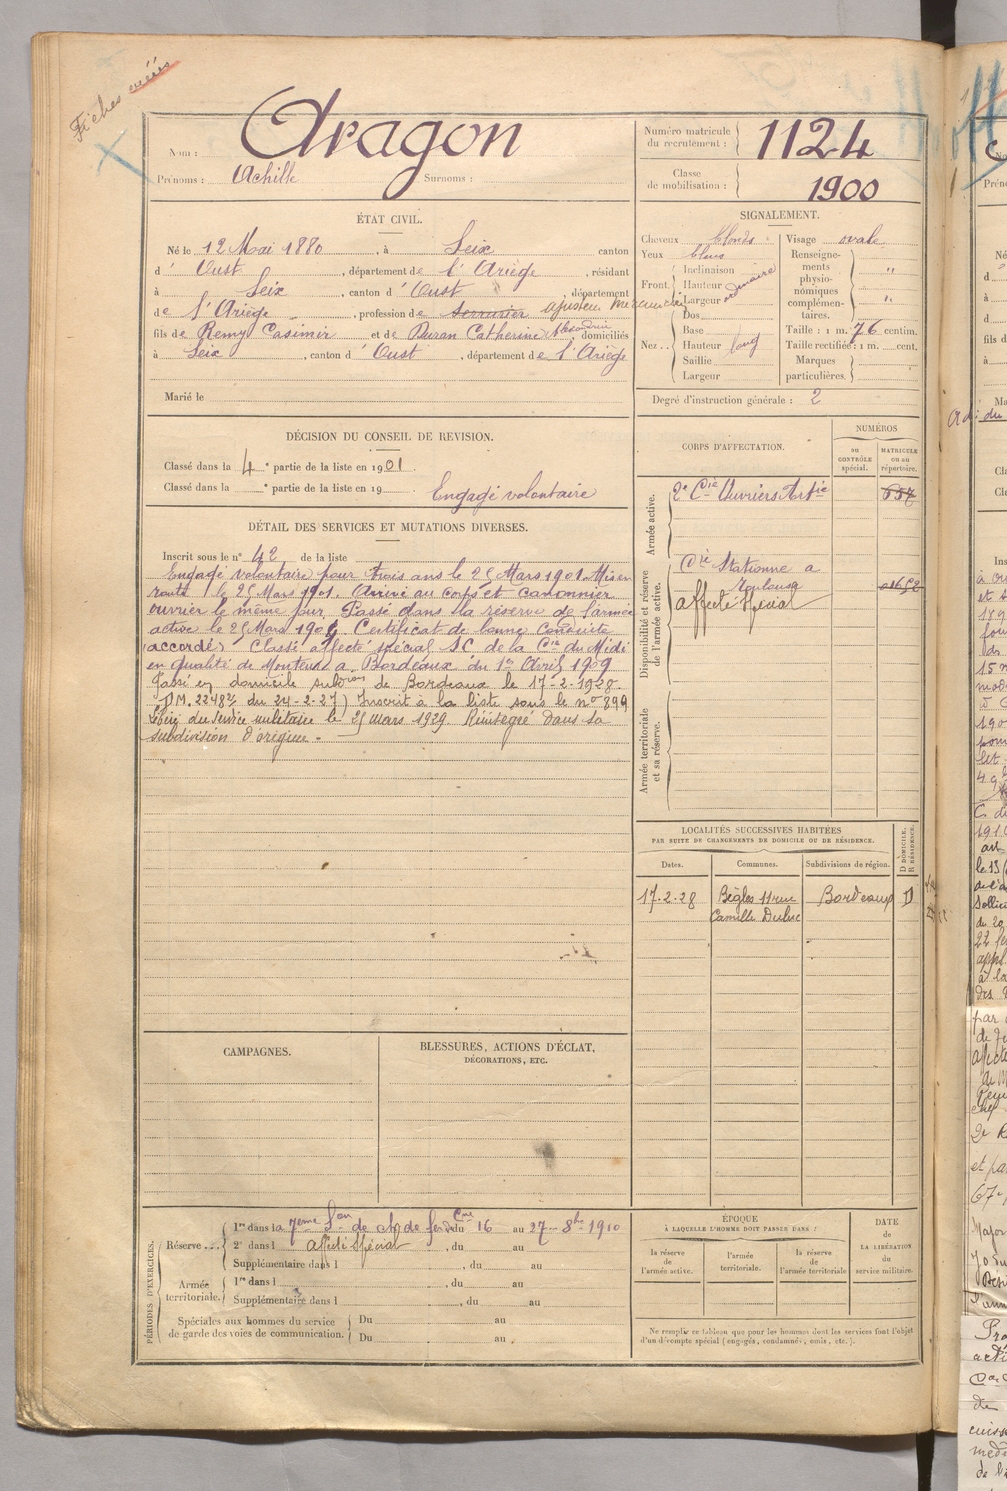 Fiches
Aragon
Nom :
Prénoms : Achille Surnoms :
Numéro matricule du recrutement : 1124
Classe de mobilisation : 1900
ÉTAT CIVIL.
Né le 12 Mai 1880, à Seix canton
d' Oust, département de l'Ariège, résidant
à Seix, canton d' Oust, département
de l'Ariège, profession de Serrurier ajusteur mécanicien
fils de Remy Casimir et de Duran Catherine Alexandrine, domiciliés
à Seix, canton d' Oust, département de l'Ariège
Marié le
SIGNALEMENT.
Cheveux blonds
Yeux bleus
Front Inclinaison
Hauteur
Largeur ordinaire
Nez.. Dos
Base
Hauteur long
Saillie
Largeur
Visage ovale
Renseignements physionomiques complémentaires. "
"
Taille : 1 m. 76 centim.
Taille rectifiée : 1 m. cent.
Marques particulières.
Degré d'instruction générale : 2
DÉCISION DU CONSEIL DE REVISION.
Classé dans la 4e partie de la liste en 1901.
Classé dans la e partie de la liste en 19
Engagé volontaire
DÉTAIL DES SERVICES ET MUTATIONS DIVERSES.
Inscrit sous le n° 42 de la liste
Engagé volontaire pour trois ans le 25 Mars 1901. Mis en
route le 25 Mars 1901. Arrivé au corps et canonnier
ouvrier le même jour. Passé dans la réserve de l'armée
active le 25 Mars 1904. Certificat de bonne conduite
accordé. Classé affecté spécial SC de la Cie du Midi
en qualité de Monteur à Bordeaux du 1er Avril 1909
Passé en domicile subdion de Bordeaux le 17-2-1928.
(DM. 2248 du 24-2-27) Inscrit à la liste sous le no 899
Libéré du service militaire le 25 mars 1929. Réintégré dans sa
subdivision d'origine.
CORPS D'AFFECTATION.
NUMÉROS
au CONTRÔLE spécial.
MATRICULE ou au répertoire.
Armée active.
2e Cie Ouvriers Artie 657
Disponibilité et réserve de l'armée active.
Cie Stationnée à
Toulouse
affecté Spécial
Armée territoriale et sa réserve.
LOCALITÉS SUCCESSIVES HABITÉES
PAR SUITE DE CHANGEMENTS DE DOMICILE OU DE RÉSIDENCE.
Dates. Communes. Subdivisions de région. D DOMICILE. R RÉSIDENCE.
17.2.28 Bègles 11 rue Bordeaux D
Camille Dubuc
CAMPAGNES.
BLESSURES, ACTIONS D'ÉCLAT,
DÉCORATIONS, ETC.
PÉRIODES D'EXERCICES.
Réserve ... 1re dans la 7eme Son de ch de fer de Cne du 16 au 27 8bre 1910
2e dans l affecté Spécial, du au
Supplémentaire dans l, du au
Armée territoriale. 1re dans l, du au
Supplémentaire dans l, du au
Spéciales aux hommes du service de garde des voies de communication. Du au
Du au
ÉPOQUE
À LAQUELLE L'HOMME DOIT PASSER DANS :
la réserve de l'armée active.
l'armée territoriale.
la réserve de l'armée territoriale
DATE de LA LIBÉRATION du service militaire.
Ne remplir ce tableau que pour les hommes dont les services font l'objet
d'un décompte spécial (engagés, condamnés, omis, etc.).